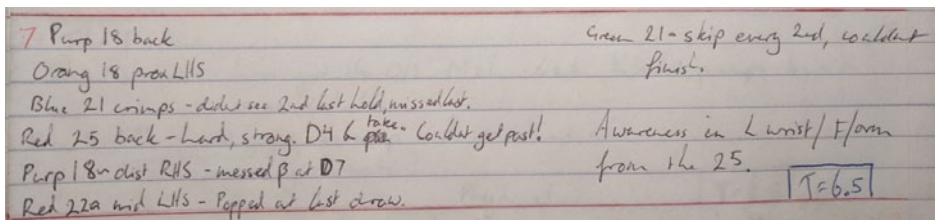 7 Purp 18 back
Orang 18 prox LHS
Blue 21 crimps - didnt see 2nd last hold, missed last.
Red 25 back - Hard, strong. D4 & take. Couldnt get past!
Purp 18 dist RHS - messed β at D7
Red 22a mid LHS - Popped at last draw.
Green 21 - skip every 2nd, couldnt
finish.
Awareness in L wrist/F/arm
from the 25.
T=6.5